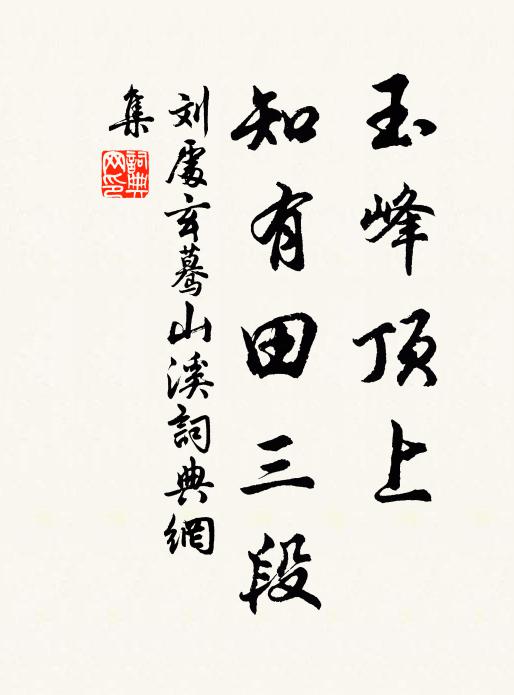 玉峰顶上
知有田三段
刘處玄蓦山溪詞典網
集
詞典
网印